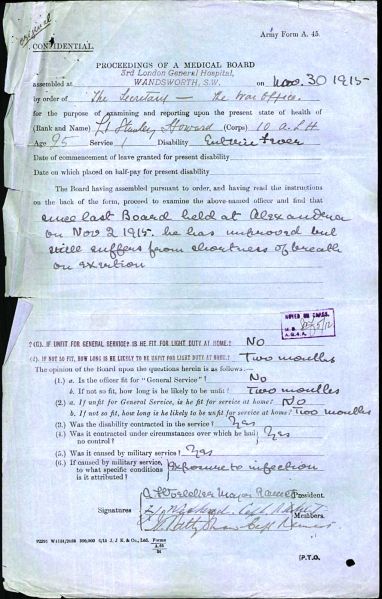 original
Army Form A. 45.
CONFIDENTIAL.
PROCEEDINGS OF A MEDICAL BOARD
3rd London General Hospital,
assembled at WANDSWORTH, S.W. on Nov. 30 1915
by order of The Secretary — The War Office.
for the purpose of examining and reporting upon the present state of health of
(Rank and Name) Lt Stanley Howard (Corps) 10 A.L.H
Age 25 Service 1 Disability Enteric Fever
Date of commencement of leave granted for present disability
Date on which placed on half-pay for present disability
The Board having assembled pursuant to order, and having read the instructions
on the back of the form, proceed to examine the above-named officer and find that
since last Board held at Alexandria
on Nov 2 1915. he has improved but
still suffers from shortness of breath
on exertion
NOTED ON CARDS.
? (C). IF UNFIT FOR GENERAL SERVICE? IS HE FIT FOR LIGHT DUTY AT HOME? NO
(d). IF NOT SO FIT, HOW LONG IS HE LIKELY TO BE UNFIT FOR LIGHT DUTY AT HOME? Two months
The opinion of the Board upon the questions herein is as follows:—
(1.) a. Is the officer fit for "General Service"? No
b. If not so fit, how long is he likely to be unfit? Two months
(2.) a. If unfit for General Service, is he fit for service at home? No
b. If not so fit, how long is he likely to be unfit for service at home? Two months
(3.) Was the disability contracted in the service? Yes
(4.) Was it contracted under circumstances over which he had no control? Yes
(5.) Was it caused by military service? Yes
(6.) If caused by military service, to what specific conditions is it attributed? Exposure to infection
Signatures
Major President.
Capt
Capt Members.
Forms
A.45
[P.T.O.